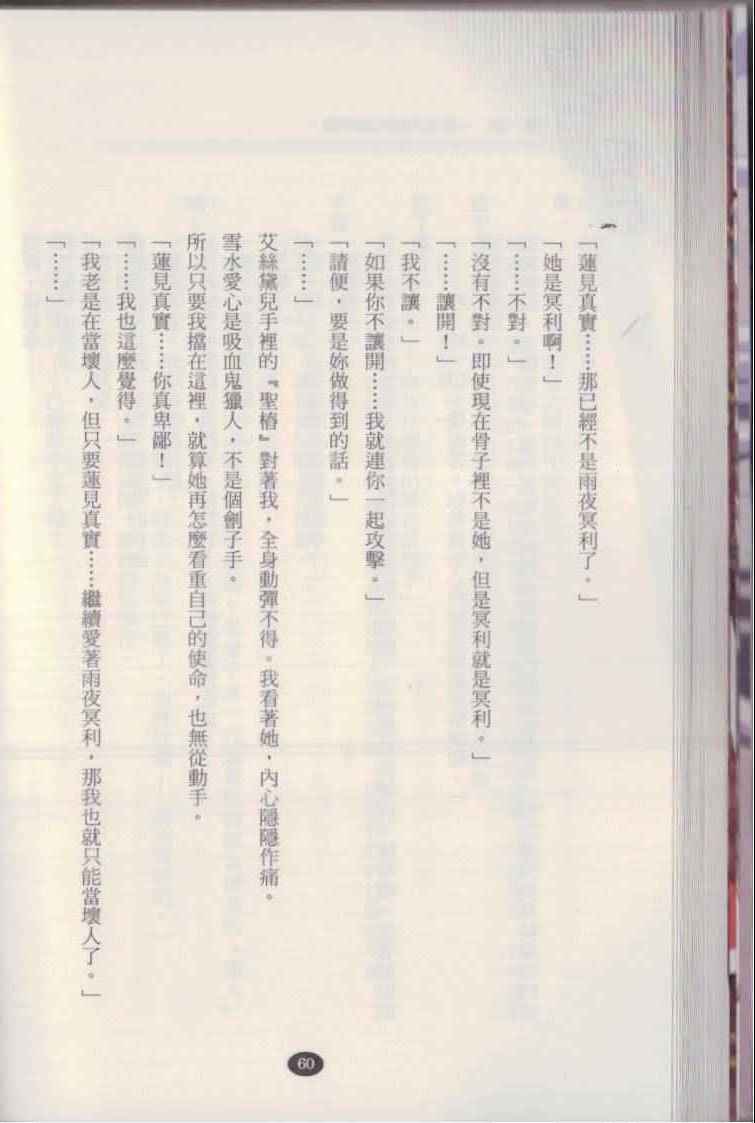 「蓮見真實……那已經不是雨夜冥利了。」
「她是冥利啊！」
「……不對。」
「沒有不對。即使現在骨子裡不是她，但是冥利就是冥利。」
「……讓開！」
「我不讓。」
「如果你不讓開……我就連你一起攻擊。」
「請便，要是妳做得到的話。」
「……」
艾絲黛兒手裡的『聖樁』對著我，全身動彈不得。我看著她，內心隱隱作痛。
雪水愛心是吸血鬼獵人，不是個劊子手。
所以只要我擋在這裡，就算她再怎麼看重自己的使命，也無從動手。
「蓮見真實……你真卑鄙！」
「……我也這麼覺得。」
「我老是在當壞人，但只要蓮見真實……繼續愛著雨夜冥利，那我也就只能當壞人了。」
「……」
60